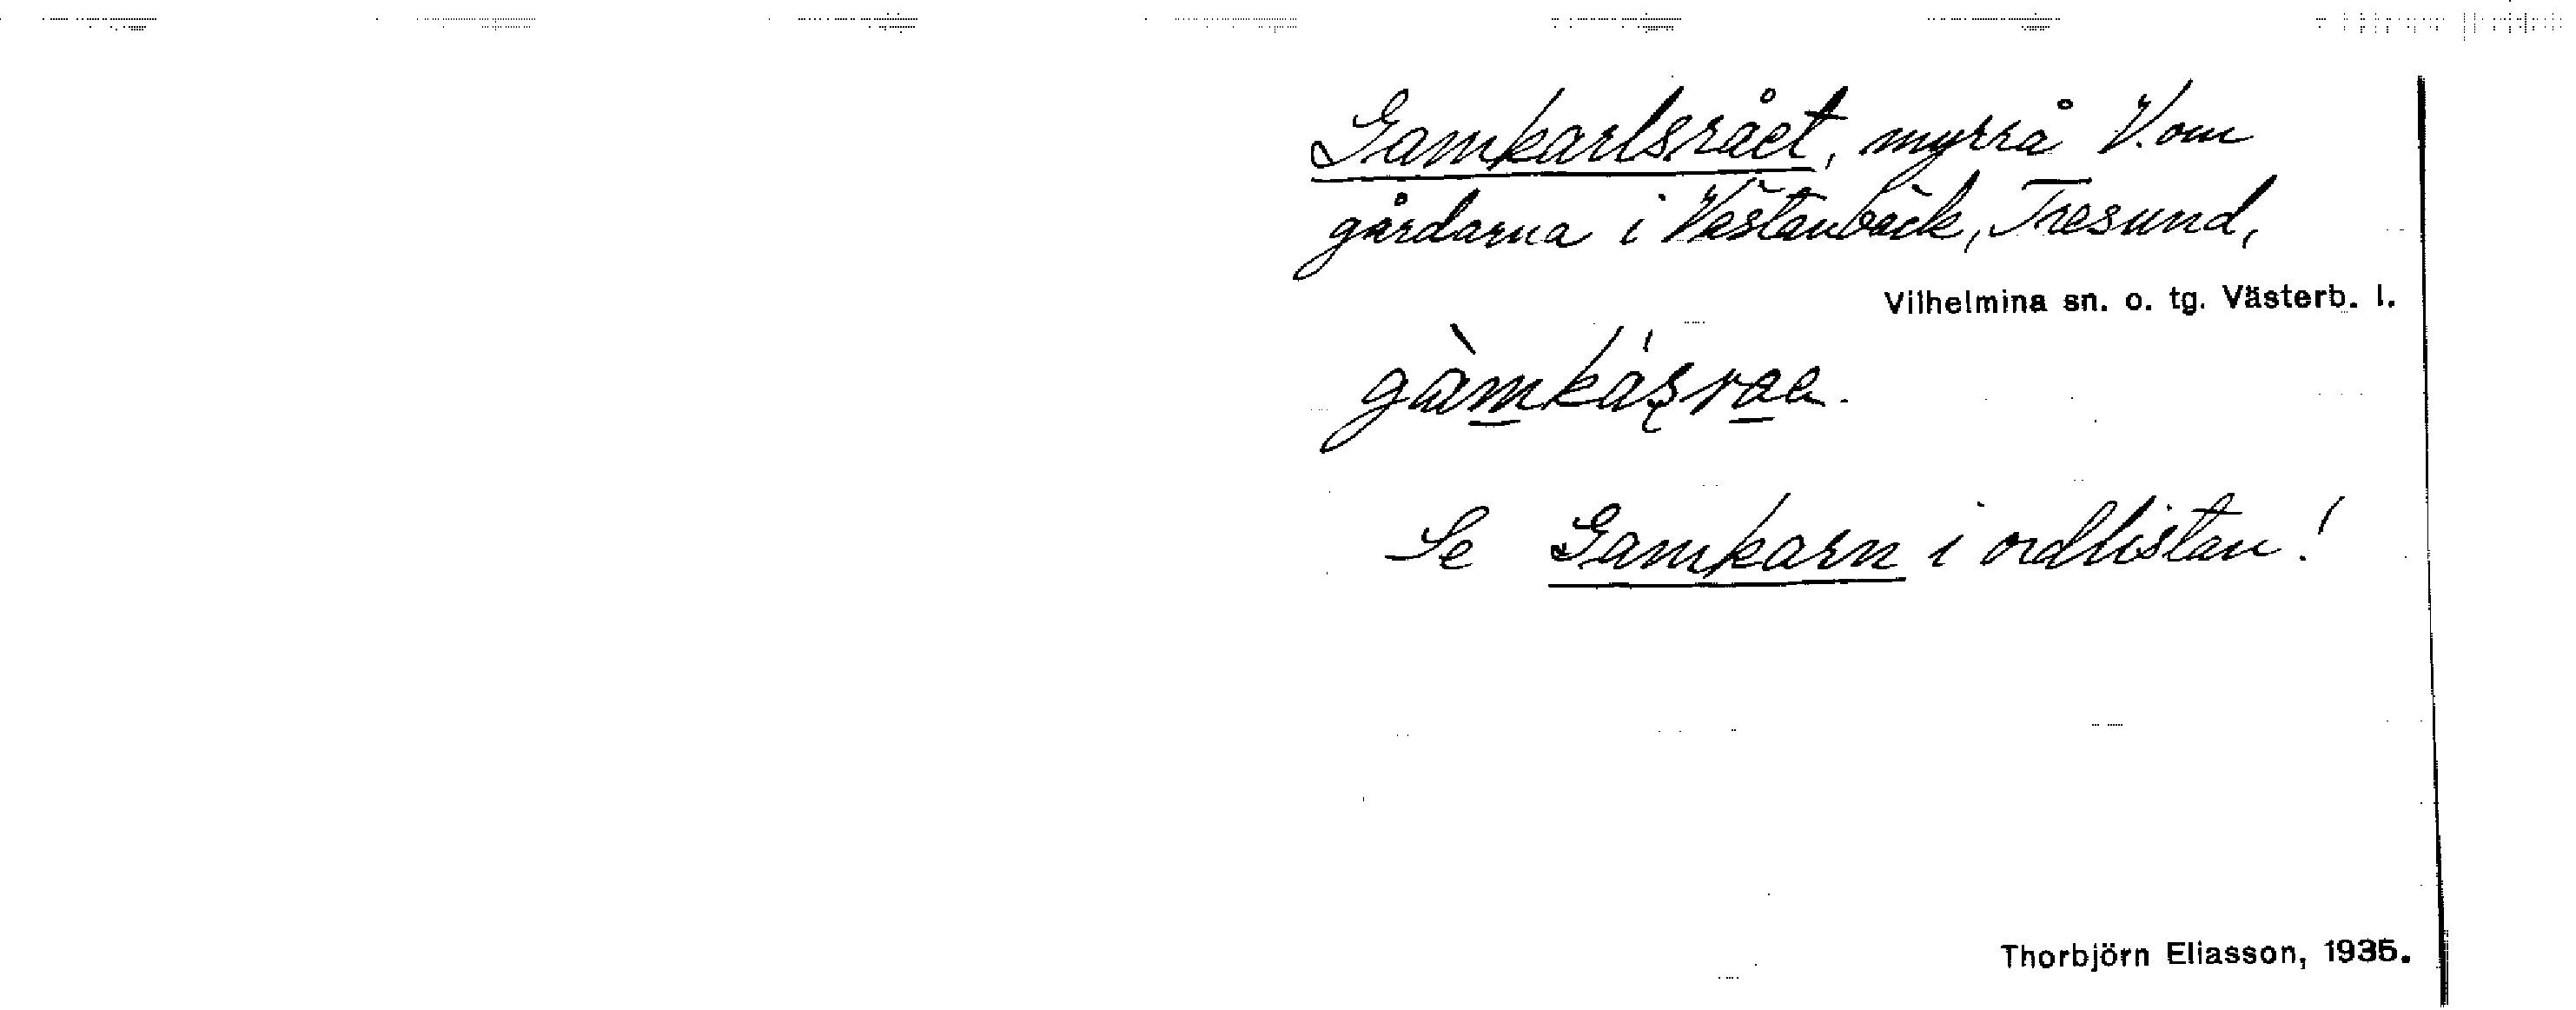 Gamkarlsrået, myrrå V. om
gårdarna i Västanbäck, Tresund,
Vilhelmina sn. o. tg. Västerb. l.
Se Gamkarn i ordlistan!
Thorbjörn Eliasson, 1935.